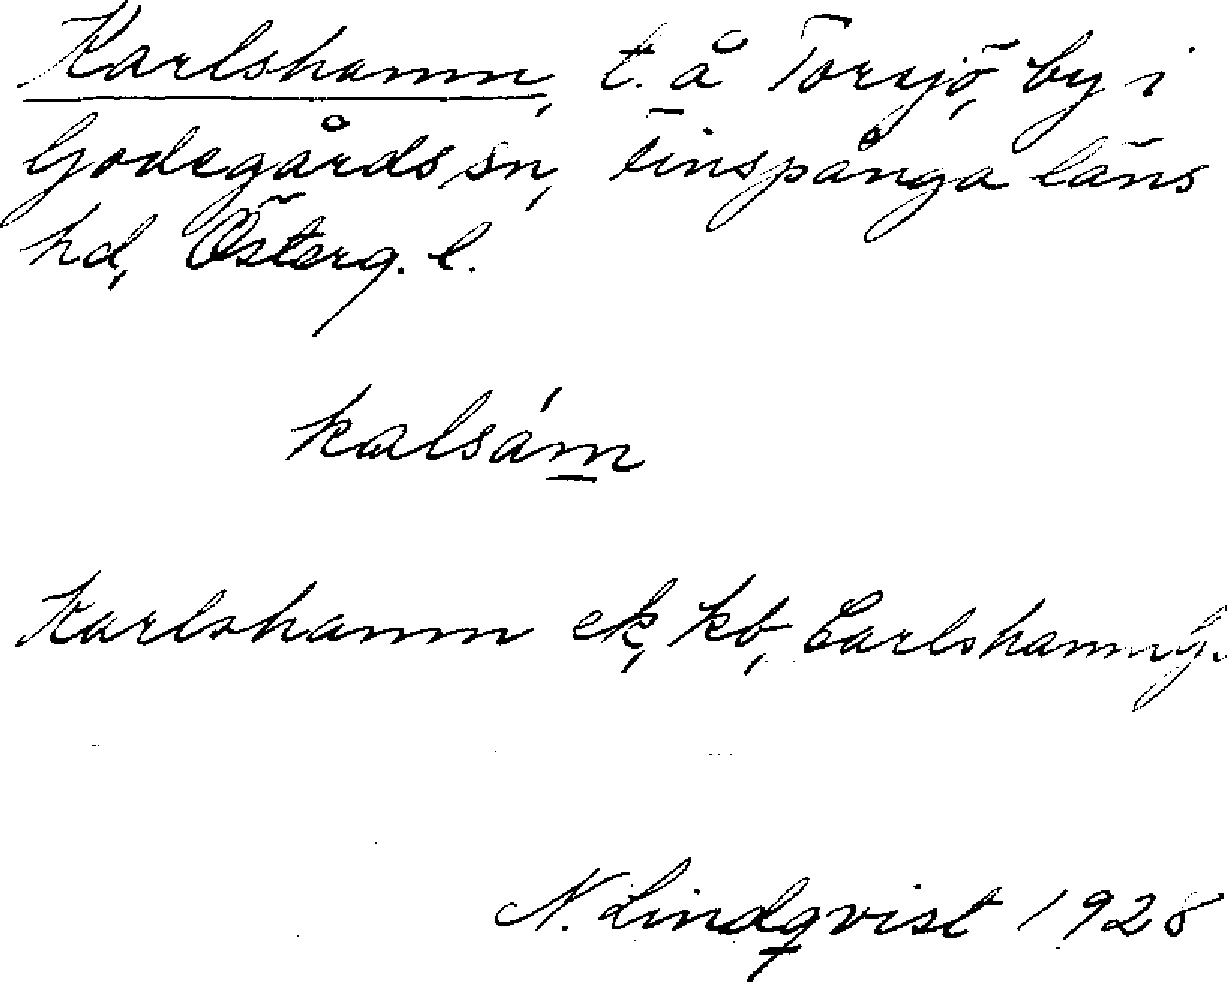 Karlshamn, t. å Torsjö, by i
Godegårds sn, Finspånga läns
hd, Österg. l.
kalsám
Karlshamn ek, kb, Carlshamn G.
N. Lindqvist 1928